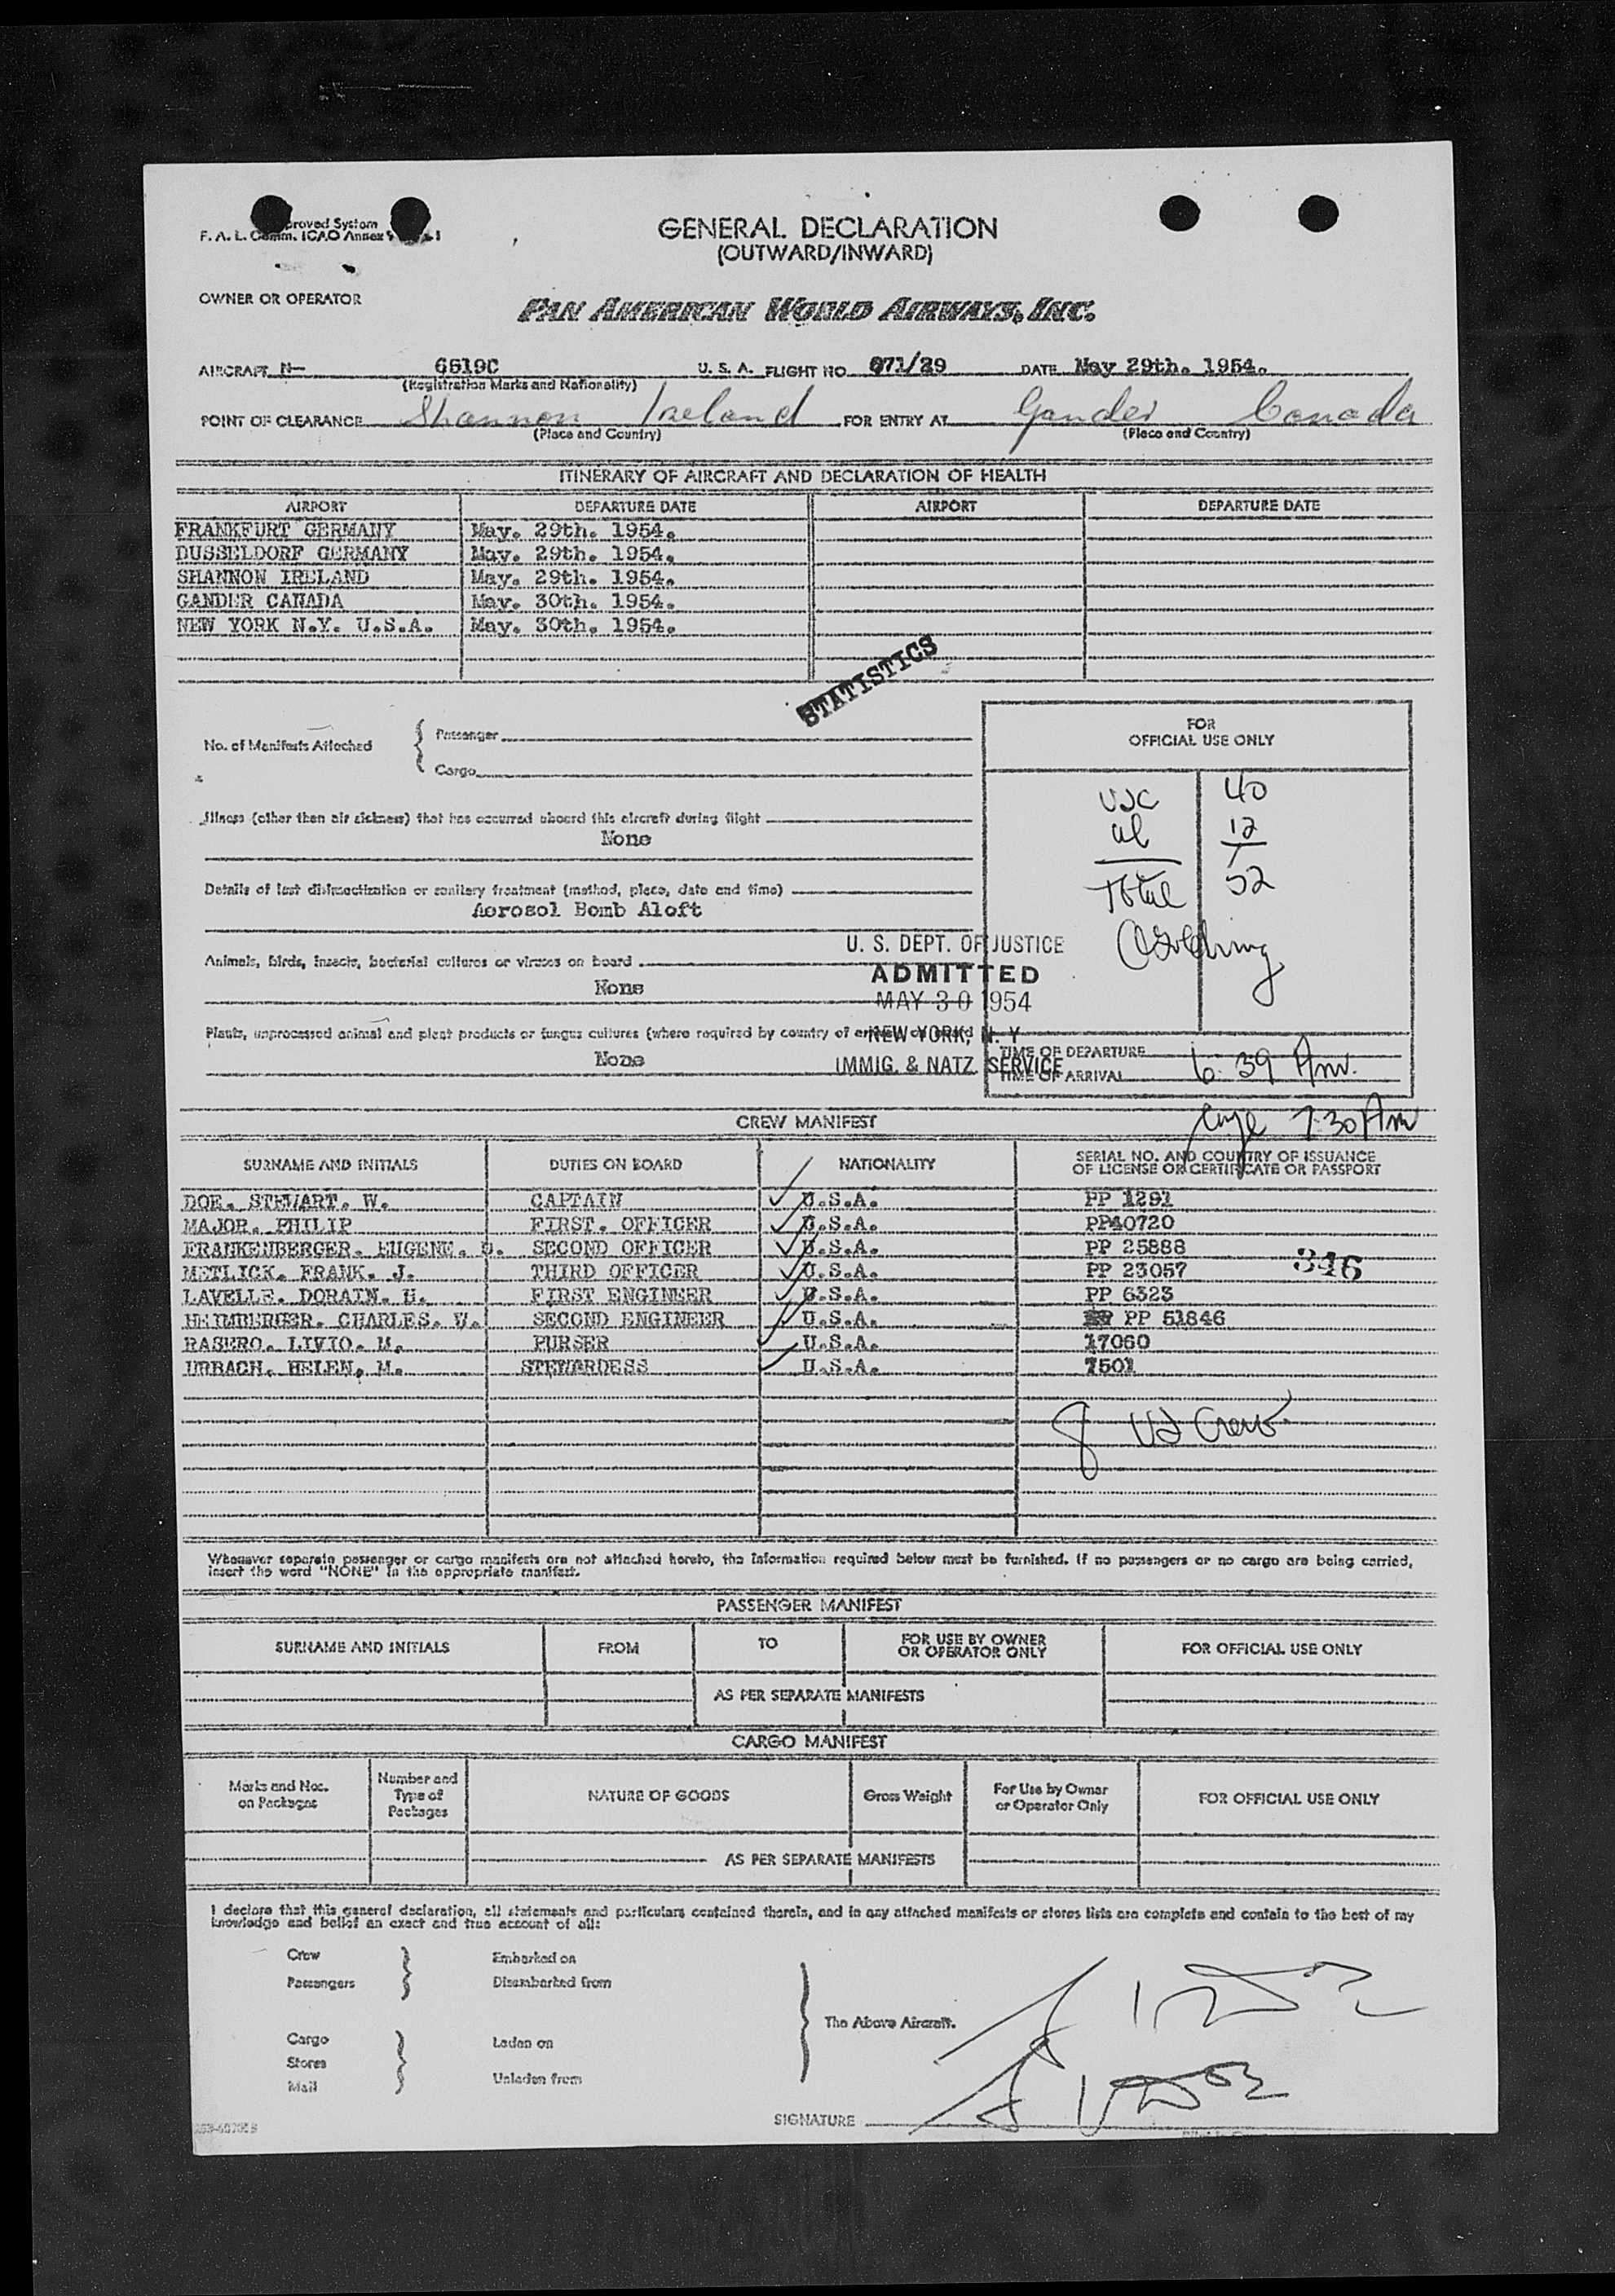 GENERAL DECLARATION
(OUTWARD/INWARD)
proved System
F. A. L. Comm. ICAO Annex 9
OWNER OR OPERATOR
PAN AMERICAN WORLD AIRWAYS, INC.
AIRCRAFT N- 6519C U. S. A. FLIGHT NO. 071/29 DATE May 29th. 1954.
(Registration Marks and Nationality)
POINT OF CLEARANCE Shannon Ireland FOR ENTRY AT Gander Canada
(Place and Country) (Place and Country)
ITINERARY OF AIRCRAFT AND DECLARATION OF HEALTH
AIRPORT DEPARTURE DATE AIRPORT DEPARTURE DATE
FRANKFURT GERMANY May. 29th. 1954.
DUSSELDORF GERMANY May. 29th. 1954.
SHANNON IRELAND May. 29th. 1954.
GANDER CANADA May. 30th. 1954.
NEW YORK N.Y. U.S.A. May. 30th. 1954.
STATISTICS
No. of Manifests Attached { Passenger
Cargo
FOR
OFFICIAL USE ONLY
USC 40
al 12
Total 52
Illness (other than air sickness) that has occurred aboard this aircraft during flight
None
Details of last disinsectization or sanitary treatment (method, place, date and time)
Aerosol Bomb Aloft
Animals, birds, insects, bacterial cultures or viruses on board
None
Plants, unprocessed animal and plant products or fungus cultures (where required by country of
None
U. S. DEPT. OF JUSTICE
ADMITTED
MAY 30 1954
NEW YORK, N. Y
IMMIG. & NATZ. SERVICE
TIME OF DEPARTURE
TIME OF ARRIVAL 6:39 Am.
7:30 Am
CREW MANIFEST
SURNAME AND INITIALS DUTIES ON BOARD NATIONALITY SERIAL NO. AND COUNTRY OF ISSUANCE
OF LICENSE OR CERTIFICATE OR PASSPORT
DOE. STEWART. W. CAPTAIN U.S.A. PP 1291
MAJOR. PHILIP FIRST. OFFICER U.S.A. PP40720
FRANKENBERGER. EUGENE. SECOND OFFICER U.S.A. PP 25888
METLICK. FRANK. J. THIRD OFFICER U.S.A. PP 23057
346
LAVELLE. DORAIN. H. FIRST ENGINEER U.S.A. PP 6323
HEIMBERGER. CHARLES. W. SECOND ENGINEER U.S.A. PP 51846
RASERO. LIVIO. M. PURSER U.S.A. 17060
URBACH. HELEN. M. STEWARDESS U.S.A. 7501
8 US Crew
Whenever separate passenger or cargo manifests are not attached hereto, the information required below must be furnished. If no passengers or no cargo are being carried,
insert the word "NONE" in the appropriate manifest.
PASSENGER MANIFEST
SURNAME AND INITIALS FROM TO FOR USE BY OWNER
OR OPERATOR ONLY FOR OFFICIAL USE ONLY
AS PER SEPARATE MANIFESTS
CARGO MANIFEST
Marks and Nos.
on Packages Number and
Type of
Packages NATURE OF GOODS Gross Weight For Use by Owner
or Operator Only FOR OFFICIAL USE ONLY
AS PER SEPARATE MANIFESTS
I declare that this general declaration, all statements and particulars contained therein, and in any attached manifests or stores lists are complete and contain to the best of my
knowledge and belief an exact and true account of all:
Crew Embarked on
Passengers Disembarked from
The Above Aircraft.
Cargo Laden on
Stores
Mail Unladen from
SIGNATURE